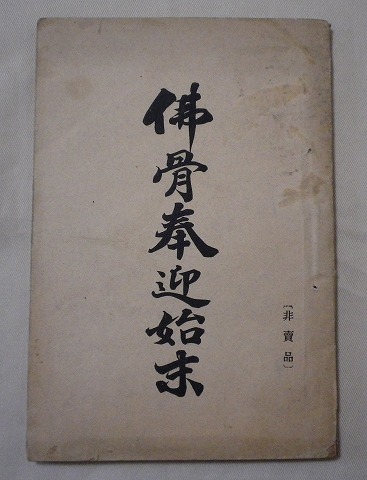 佛骨奉迎始末
〔非賣品〕